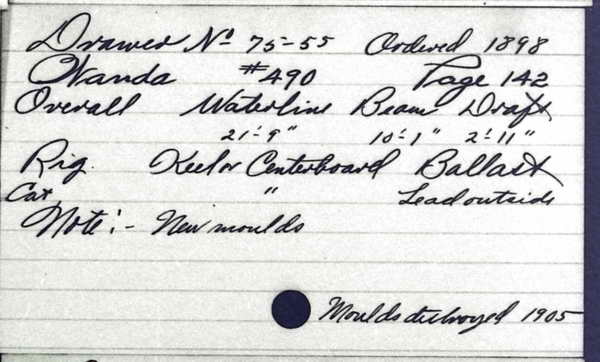 Drawer No 75-55 Ordered 1898
Wanda #490 Page 142
Overall Waterline Beam Draft
21'-9" 10'-1" 2'-11"
Rig. Keel or Centerboard Ballast
Cat " Lead outside
Note:- New moulds
Moulds destroyed 1905